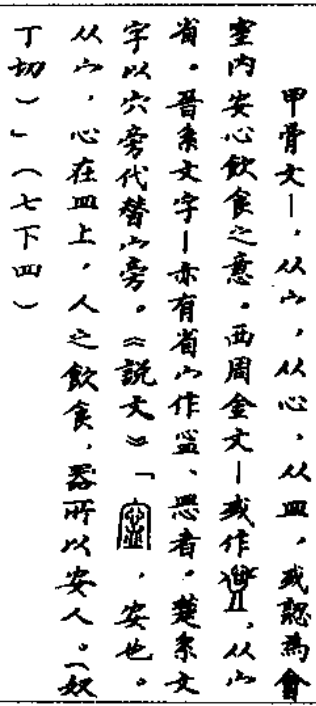 甲骨文—,从宀,从心,从皿,或認為會
室内安心飲食之意。西周金文—或作,从宀
省。晉系文字—亦有省宀作、者。楚系文
字以穴旁代替宀旁。《說文》「,安也。
从宀,心在皿上,人之飲食,器所以安人。(奴
丁切)」(七下四)